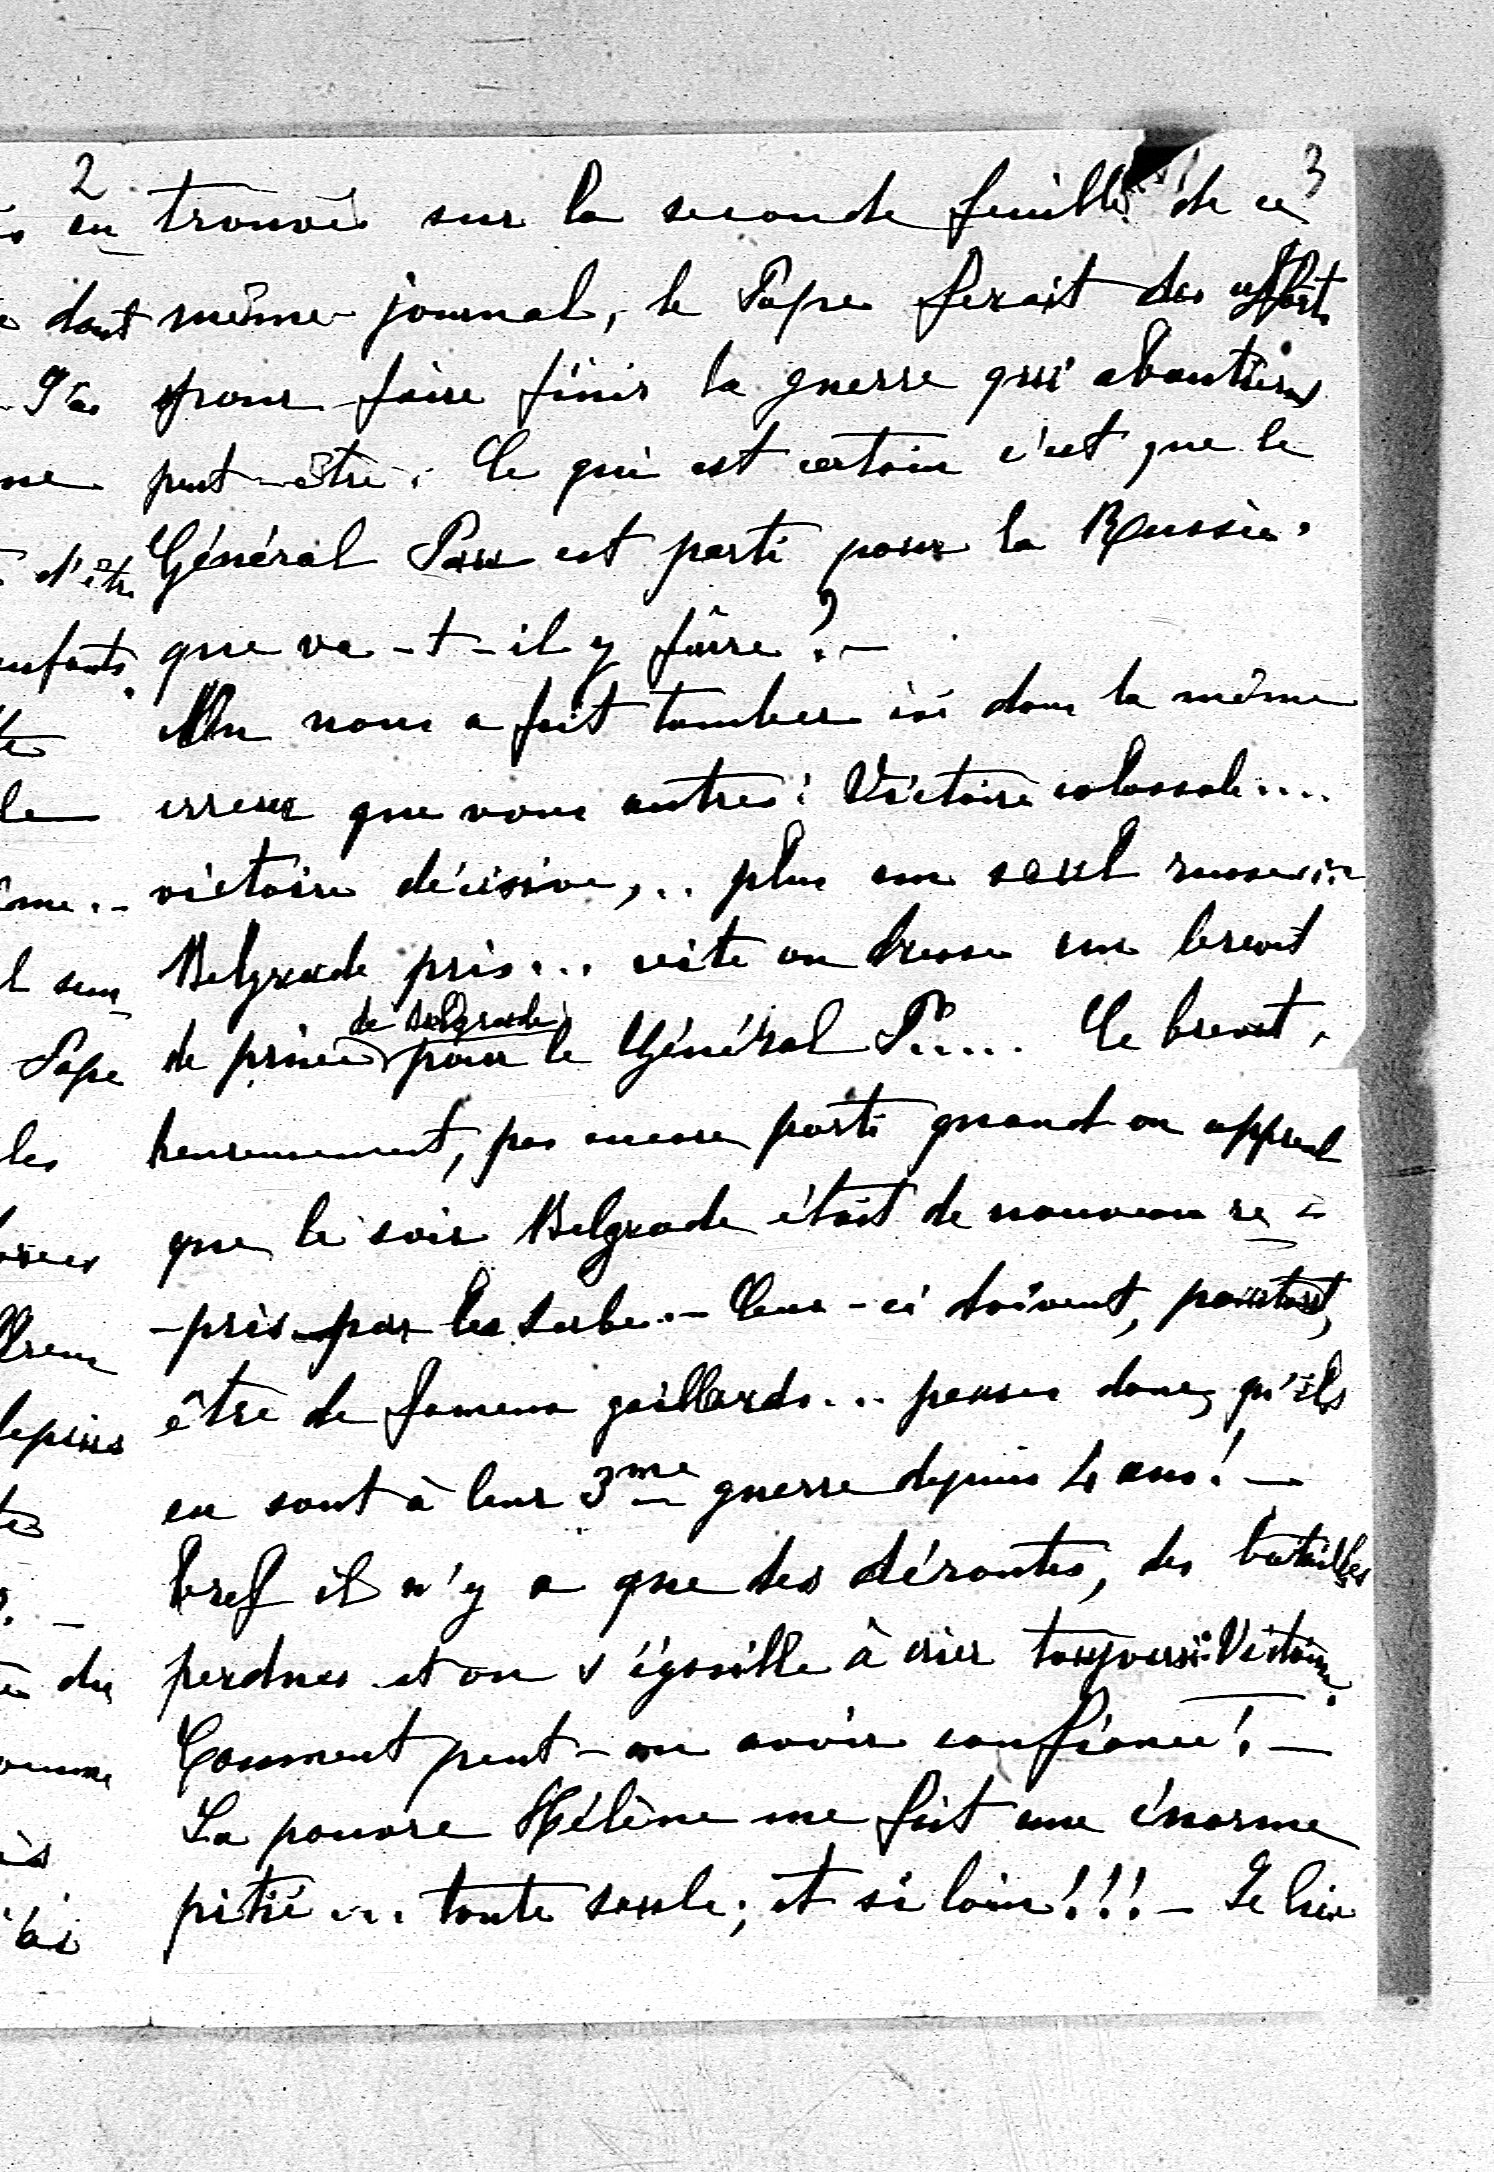 2
3
en trouvé sur la seconde feuille de ce
dont même journal, le Pape ferait des efforts
pour faire finir la guerre qui aboutiront
peut-être. Ce qui est certain c'est que le
Général Pau est parti pour la Russie.
que va-t-il y faire?—
On nous a fait tomber ici dans la même
erreur que vous autres: Victoire colossale....
victoire décisive,... plus un seul russe...
Belgrade pris... vite on dresse un brevet
de Belgrade
de prince pour le Général P..... Le brevet,
heureusement, pas encore parti quand on apprend
que le soir Belgrade était de nouveau re-
-pris par les serbes.— Ceux-ci doivent, pourtant,
être de fameux gaillards... pensez donc, qu'ils
en sont à leur 3me guerre depuis 4 ans!—
bref il n'y a que des déroutes, des batailles
perdues et on s'égosille à crier toujours: Victoire.
Comment peut-on avoir confiance!—
La pauvre Hélène me fait une énorme
pitié... toute seule; et si loin!!!—
d'être
enfants.
Pape
les
depuis
du